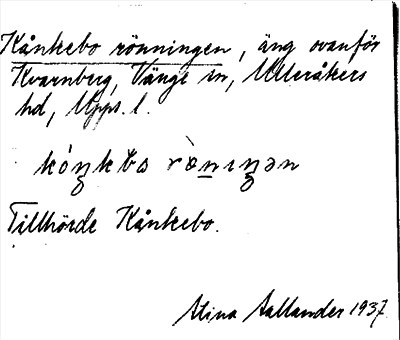 Kånkebo rönningen, äng ovanför
Kvarnberg, Vänge sn, Ulleråkers
hd, Upps. l.
Tillhörde Kånkebo.
Stina Sallander 1937